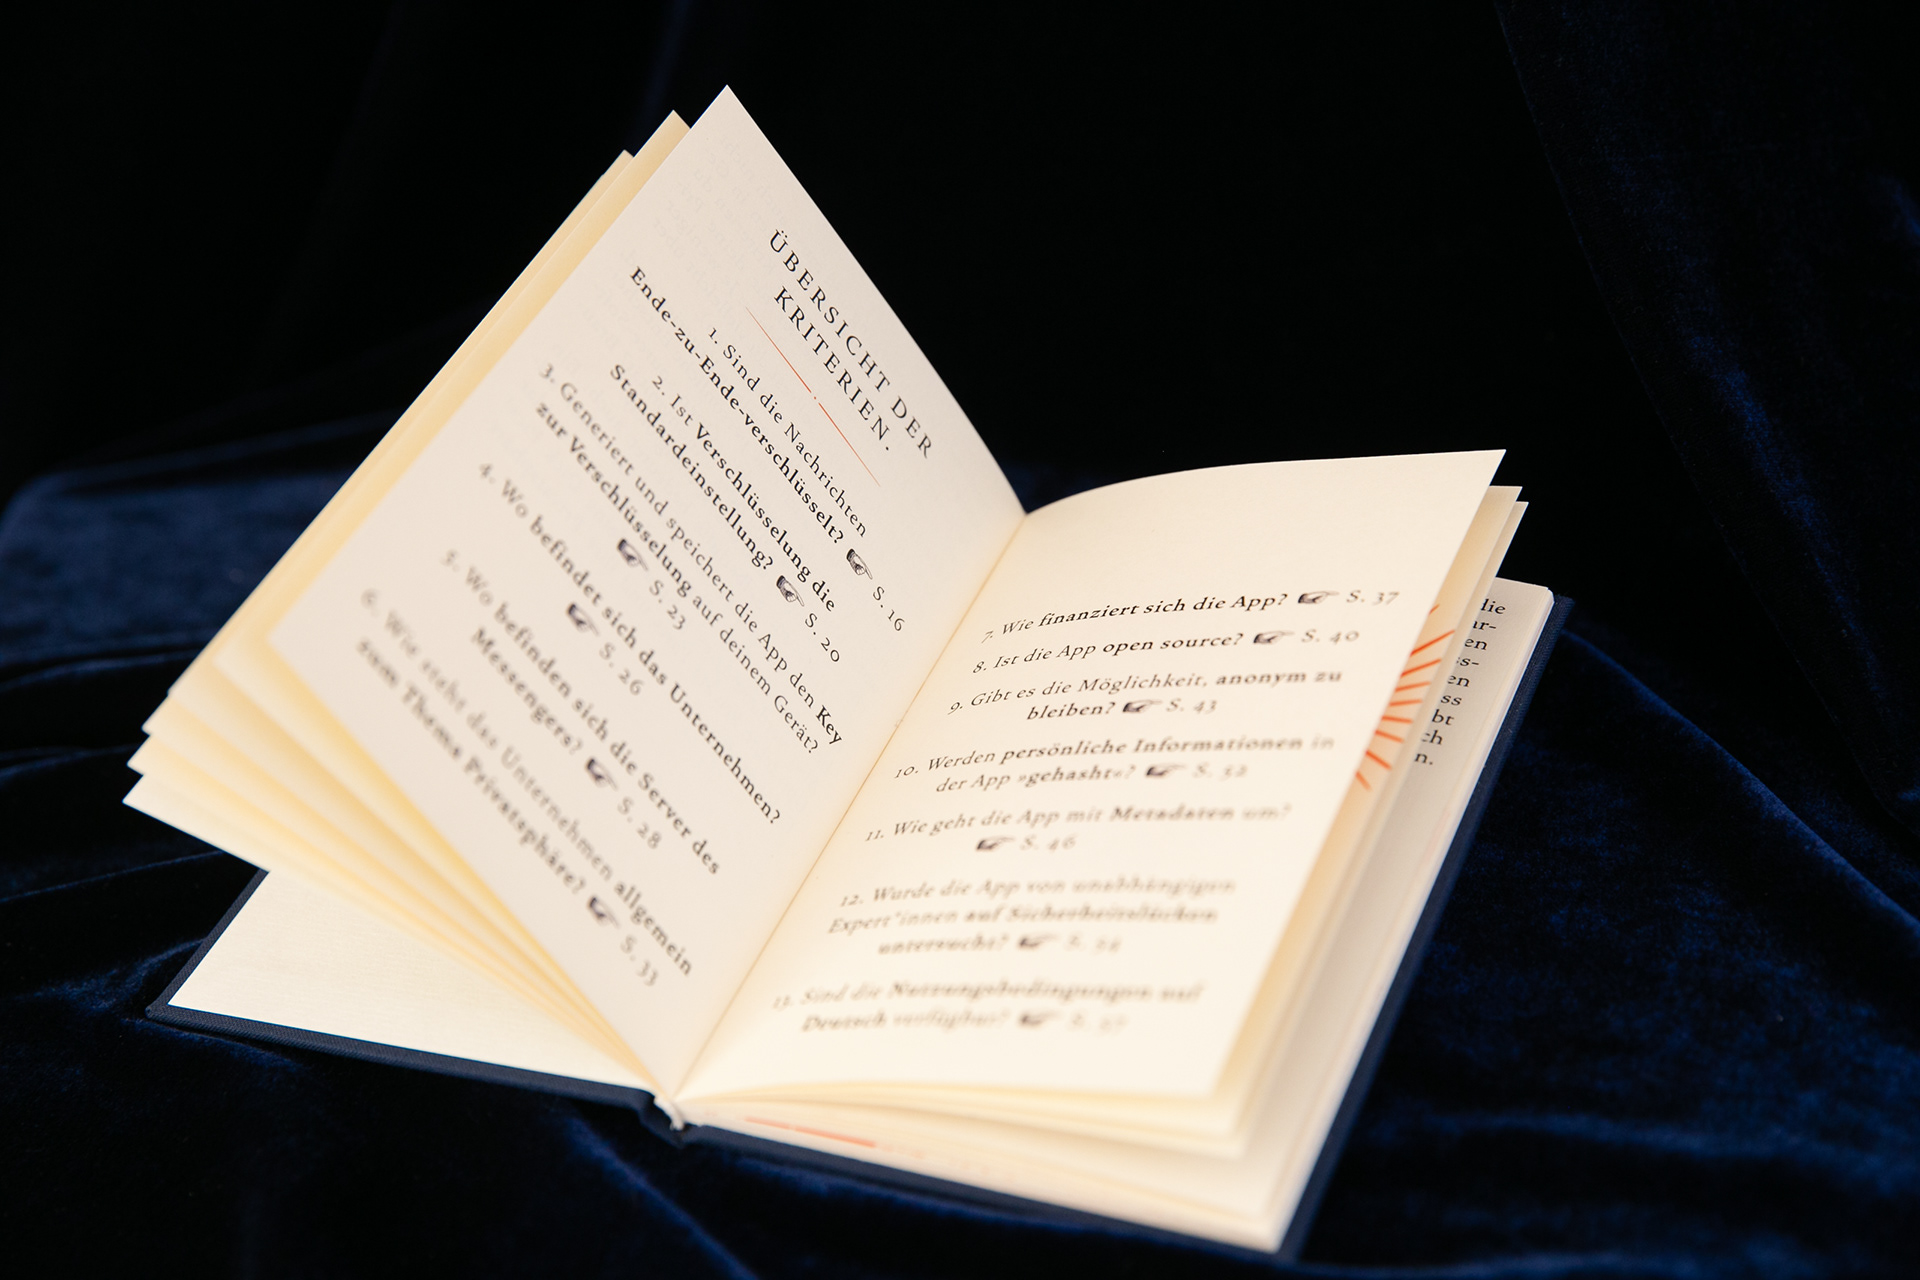 ÜBERSICHT DER
KRITERIEN.
1. Sind die Nachrichten
Ende-zu-Ende-verschlüsselt? ☞ S. 16
2. Ist Verschlüsselung die
Standardeinstellung? ☞ S. 20
3. Generiert und speichert die App den Key
zur Verschlüsselung auf deinem Gerät?
☞ S. 23
4. Wo befindet sich das Unternehmen?
☞ S. 26
5. Wo befinden sich die Server des
Messengers? ☞ S. 28
6. Wie steht das Unternehmen allgemein
zum Thema Privatsphäre? ☞ S. 33
7. Wie finanziert sich die App? ☞ S. 37
8. Ist die App open source? ☞ S. 40
9. Gibt es die Möglichkeit, anonym zu
bleiben? ☞ S. 43
10. Werden persönliche Informationen in
der App »gehasht«? ☞ S. 52
11. Wie geht die App mit Metadaten um?
☞ S. 46
12. Wurde die App von unabhängigen
Expert*innen auf Sicherheitslücken
untersucht? ☞ S.
13. Sind die Nutzungsbedingungen auf
Deutsch verfügbar? ☞ S.
die
ar-
en
ss-
en
ss
bt
ch
n.